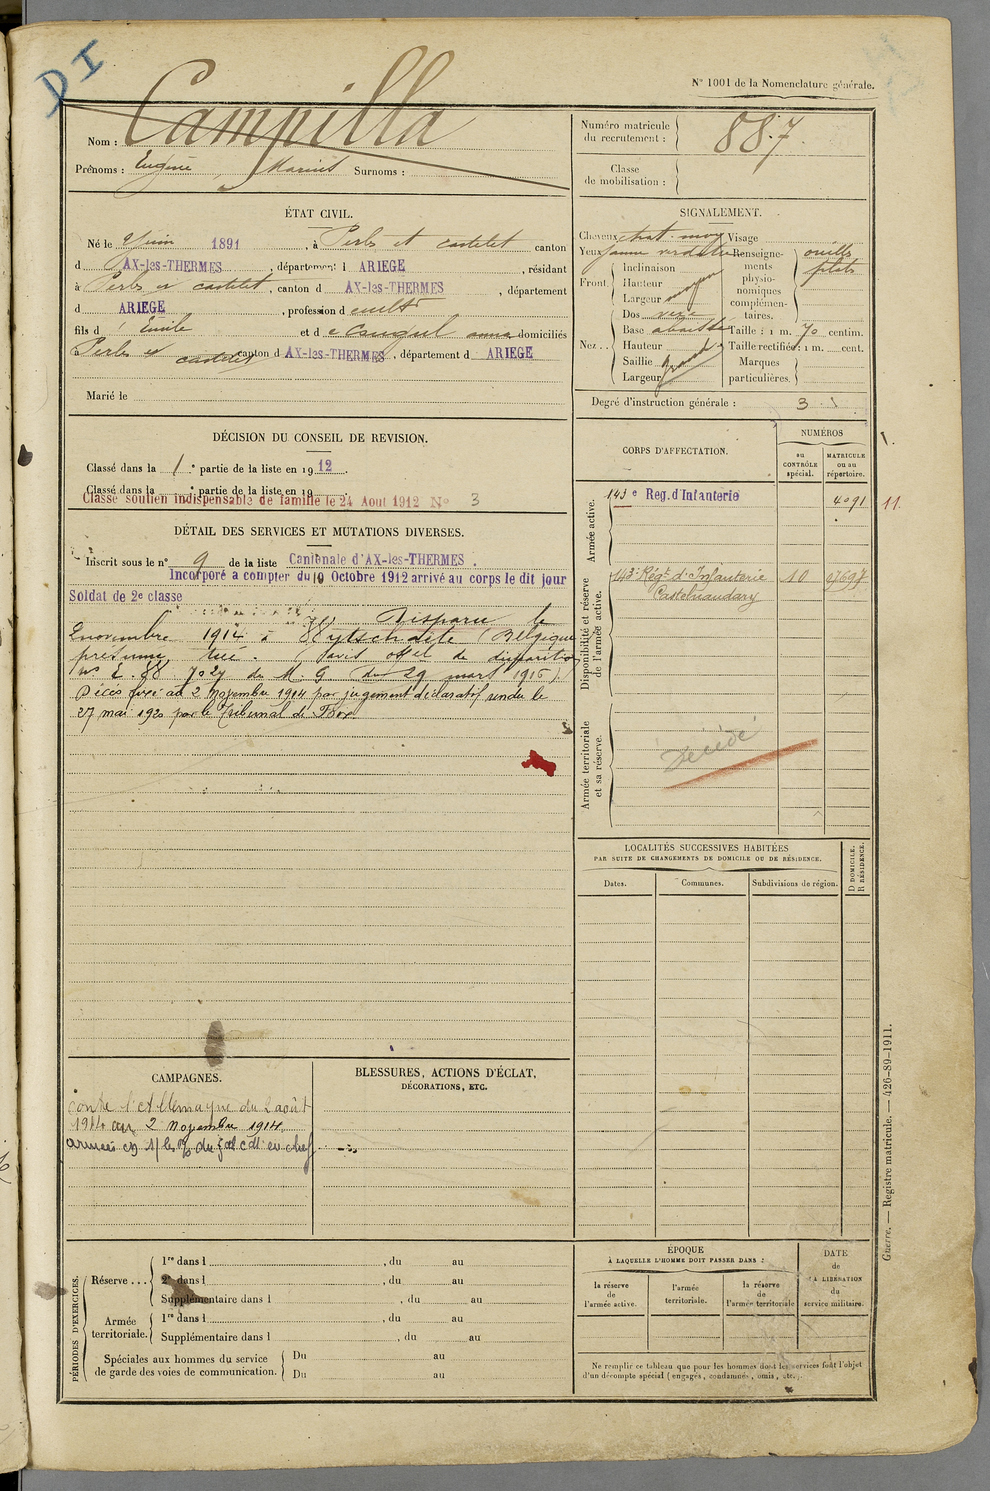 DI
N° 1001 de la Nomenclature générale.
Nom : Campilla
Prénoms : Eugène, Marius Surnoms :
Numéro matricule du recrutement : 887.
Classe de mobilisation :
ÉTAT CIVIL.
Né le Juin 1891, à Perles et castelet canton
d AX-les-THERMES, département d ARIEGE, résidant
à Perles et castelet, canton d AX-les-THERMES, département
d ARIEGE, profession d cult
fils d' Emile et de anna domiciliés
Perles et castelet canton d AX-les-THERMES, département d ARIEGE
Marié le
SIGNALEMENT.
Cheveux chat. moy Visage
Yeux jaune verdatre
Front. Inclinaison
Hauteur
Largeur moyen
Nez.. Dos
Base abaissée
Hauteur
Saillie grand
Largeur
Renseignements physionomiques complémentaires. oreilles plates
Taille : 1 m. 70 centim.
Taille rectifiée : 1 m. cent.
Marques particulières.
Degré d'instruction générale : 3
DÉCISION DU CONSEIL DE REVISION.
Classé dans la 1.e partie de la liste en 1912.
Classé dans la e partie de la liste en 19
Classé soutien indispensable de famille le 24 Aout 1912 N° 3
DÉTAIL DES SERVICES ET MUTATIONS DIVERSES.
Inscrit sous le n° 9 de la liste Cantonale d'AX-les-THERMES.
Incorporé a compter du 10 Octobre 1912 arrivé au corps le dit jour
Soldat de 2e classe
Disparu le
2 novembre 1914 à Wytschaete (Belgique)
présumé tué. (avis offel de disparition
n° E. 88 7027 du M G du 29 mars 1916)
Décès fixé au 2 Novembre 1914 par jugement déclaratif rendu le
27 mai 1920 par le Tribunal de Foix.
CORPS D'AFFECTATION.
NUMÉROS
au CONTRÔLE spécial.
MATRICULE ou au répertoire.
Armée active.
143e Reg. d'Infanterie 4091
11.
Disponibilité et réserve de l'armée active.
143e Régt d'Infanterie 10 07697
Castelnaudary
Armée territoriale et sa réserve.
Décédé
LOCALITÉS SUCCESSIVES HABITÉES
PAR SUITE DE CHANGEMENTS DE DOMICILE OU DE RÉSIDENCE.
Dates. Communes. Subdivisions de région. D DOMICILE. R RÉSIDENCE.
CAMPAGNES.
Contre l'Allemagne du 2 août
1914 au 2 Novembre 1914
BLESSURES, ACTIONS D'ÉCLAT,
DÉCORATIONS, ETC.
PÉRIODES D'EXERCICES.
Réserve... 1re dans l, du au
2e dans l, du au
Supplémentaire dans l, du au
Armée territoriale. 1re dans l, du au
Supplémentaire dans l, du au
Spéciales aux hommes du service de garde des voies de communication. Du au
Du au
ÉPOQUE
À LAQUELLE L'HOMME DOIT PASSER DANS :
la réserve de l'armée active.
l'armée territoriale.
la réserve de l'armée territoriale
DATE de LA LIBÉRATION du service militaire.
Ne remplir ce tableau que pour les hommes dont les services font l'objet
d'un décompte spécial (engagés, condamnés, omis, etc.).
Guerre. — Registre matricule. — 426-89-1911.